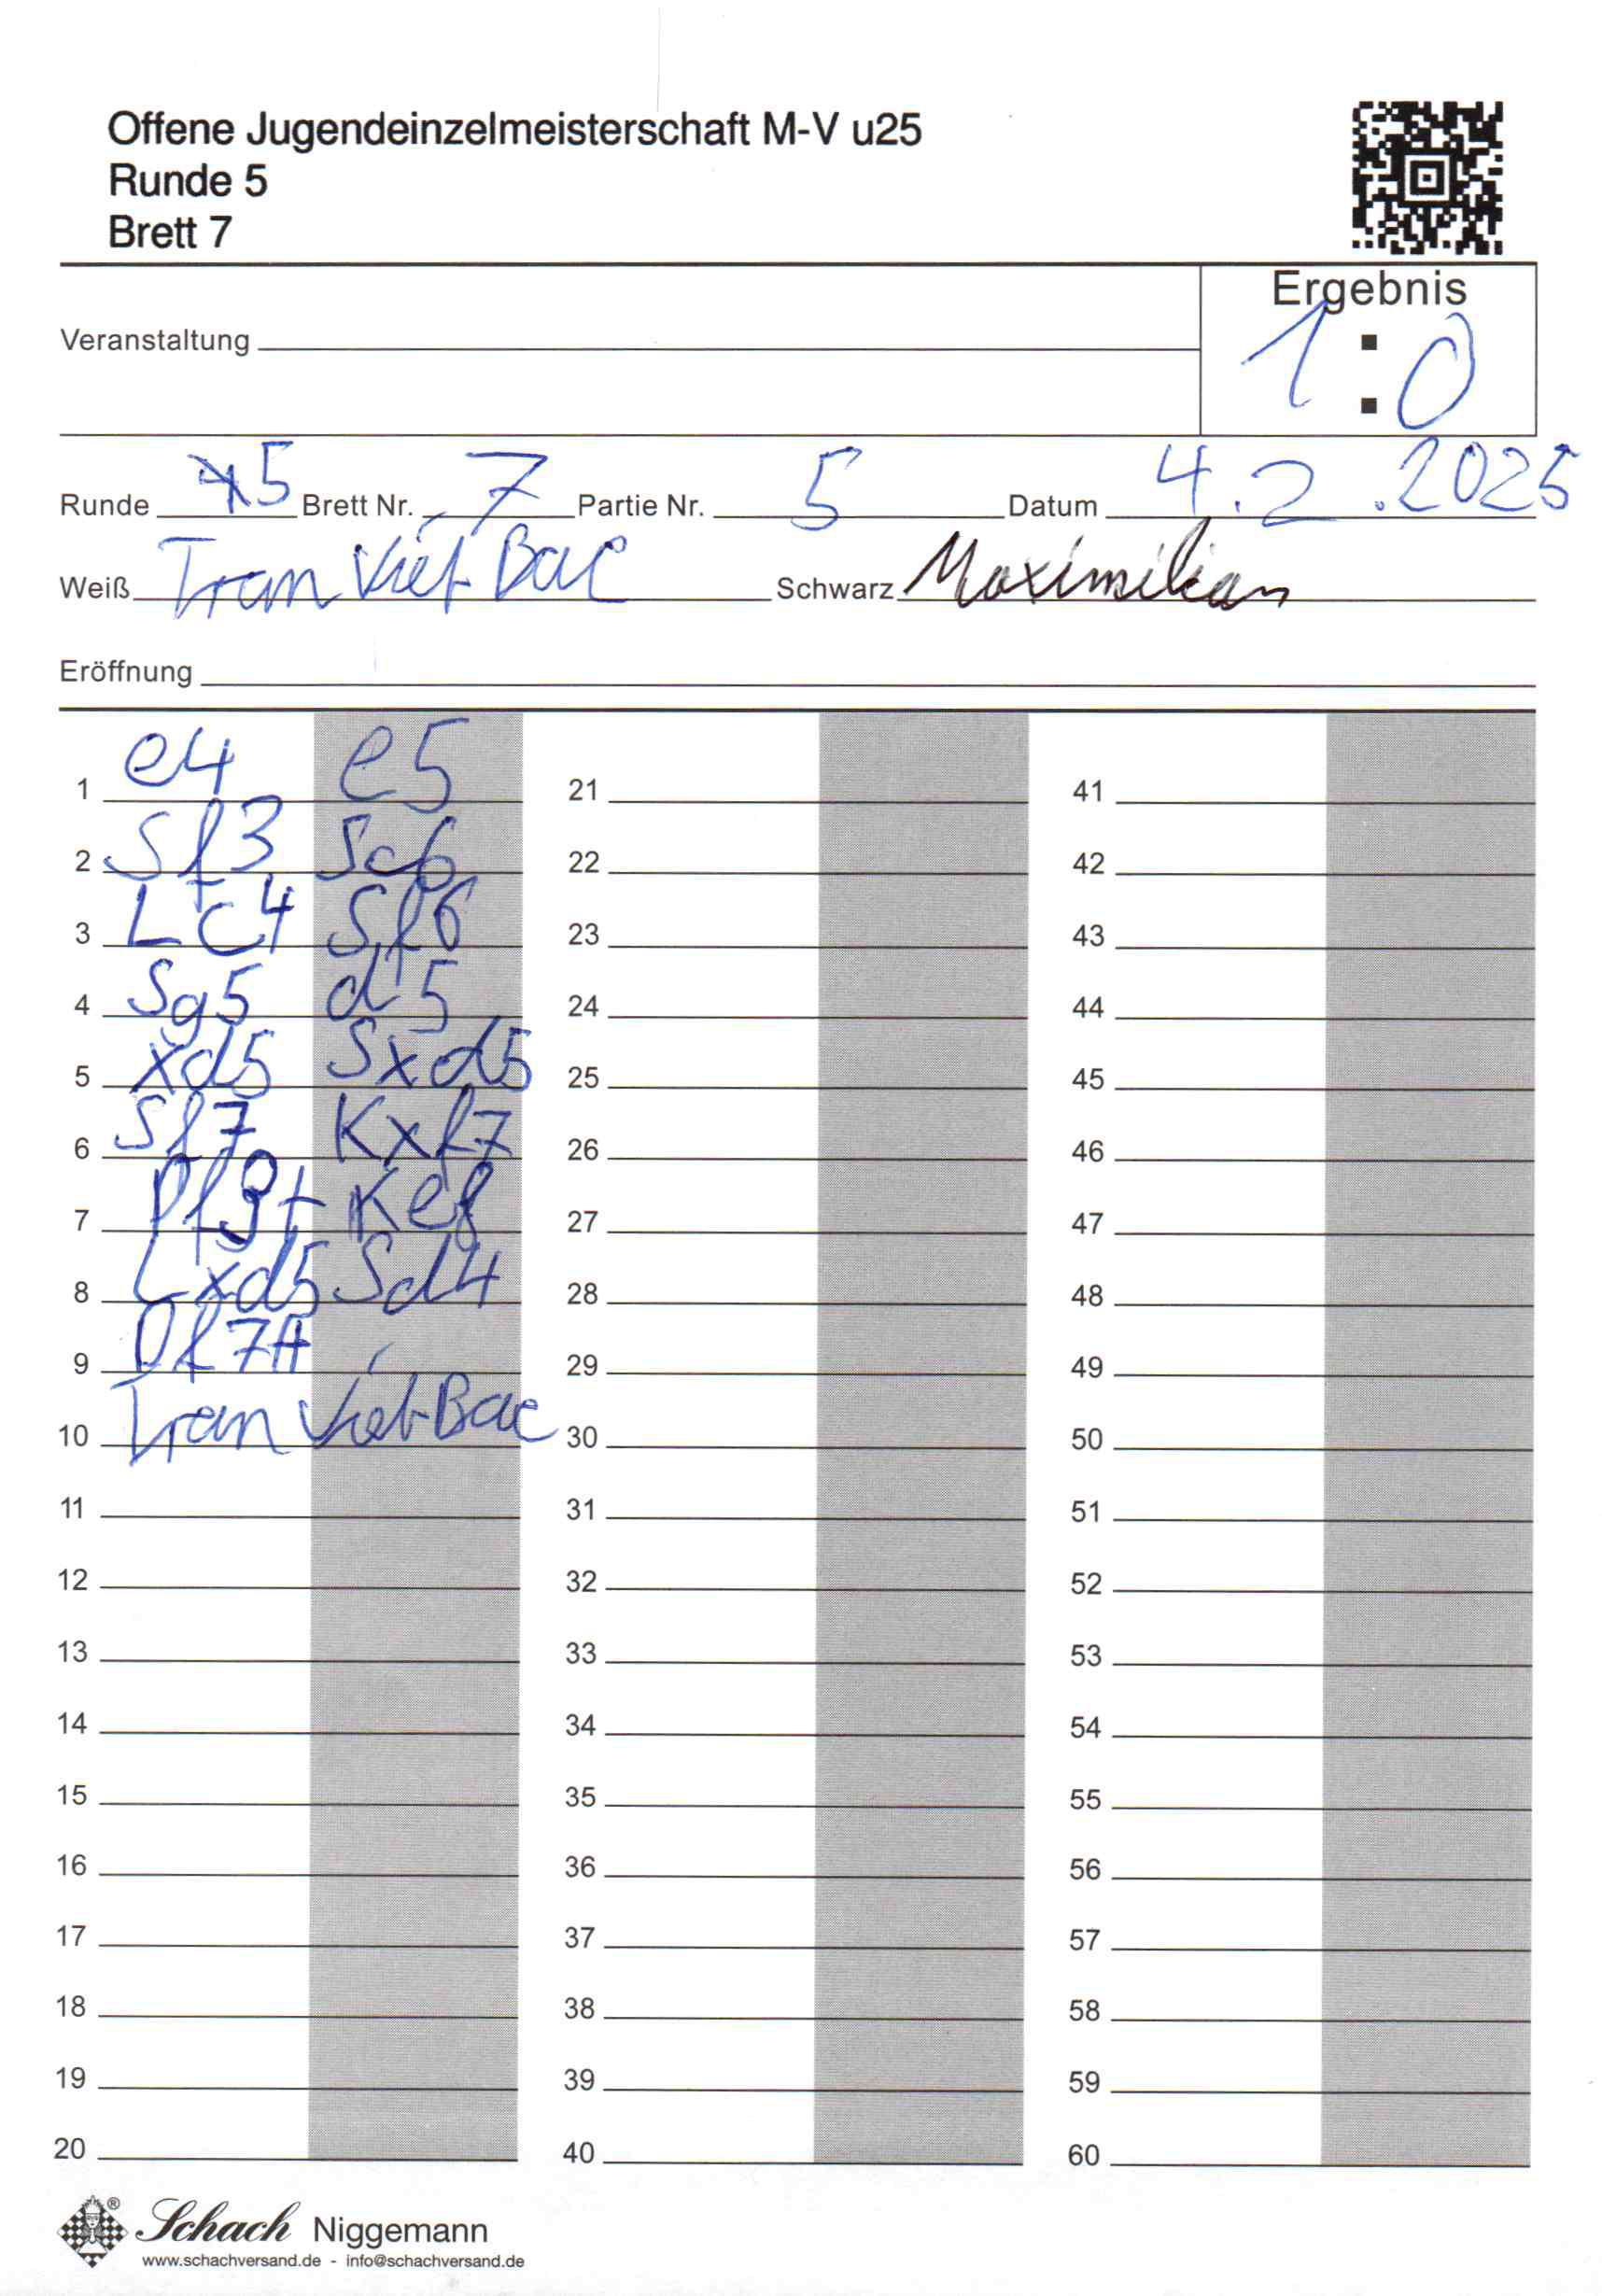 Offene Jugendeinzelmeisterschaft M-V u25
Runde 5
Brett 7
Ergebnis
1:0
Veranstaltung
Runde 5 Brett Nr. 7 Partie Nr. 5 Datum 4.2.2025
Weiß Tran Viet Bac Schwarz Maximilian
Eröffnung
1 e4 e5 21 41
2 Sf3 Sc6 22 42
3 Lc4 Sf6 23 43
4 Sg5 d5 24 44
5 xd5 Sxd5 25 45
6 Sf7 Kxf7 26 46
7 Df3+ Ke8 27 47
8 Lxd5 Sd4 28 48
9 Df7# 29 49
10 Tran Viet Bac 30 50
11 31 51
12 32 52
13 33 53
14 34 54
15 35 55
16 36 56
17 37 57
18 38 58
19 39 59
20 40 60
® Schach Niggemann
www.schachversand.de - info@schachversand.de